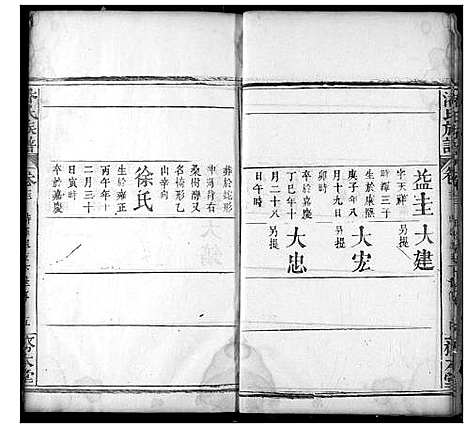 益圭
字天祥
時暉三子
生於康熙
庚子年八
月十九日
卯時
卒於嘉慶
丁巳年十
二月二十
日午時
大建
另提
大宏
另提
大忠
另提
葬於蛇形
申灣背右
桑樹灣又
名椅形乙
山辛向
徐氏
生於雍正
丙午年十
二月三十
日寅時
卒於嘉慶
氏族譜
卷
五
木堂